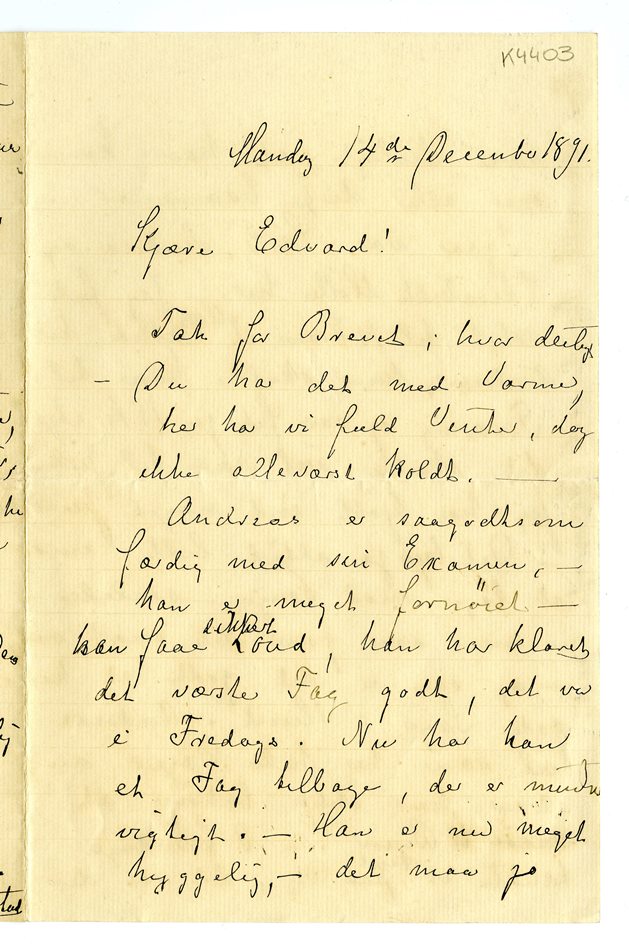 K4403
Mandag 14de December 1891.
Kjære Edvard!
Tak for Brevet, hvor deiligt
– Du har det med Varme,
her har vi fuld Vinter, dog
ikke alleværst koldt. —
Andreas er saagodtsom
færdig med sin Examen, –
han er meget fornøiet –
han faaer sikkert Laud, han har klaret
det værste Fag godt, det var
i Fredags. Nu har han
et Fag tilbage, der er mindre
vigtigt. – Han er nu meget
hyggelig, – det maa jo